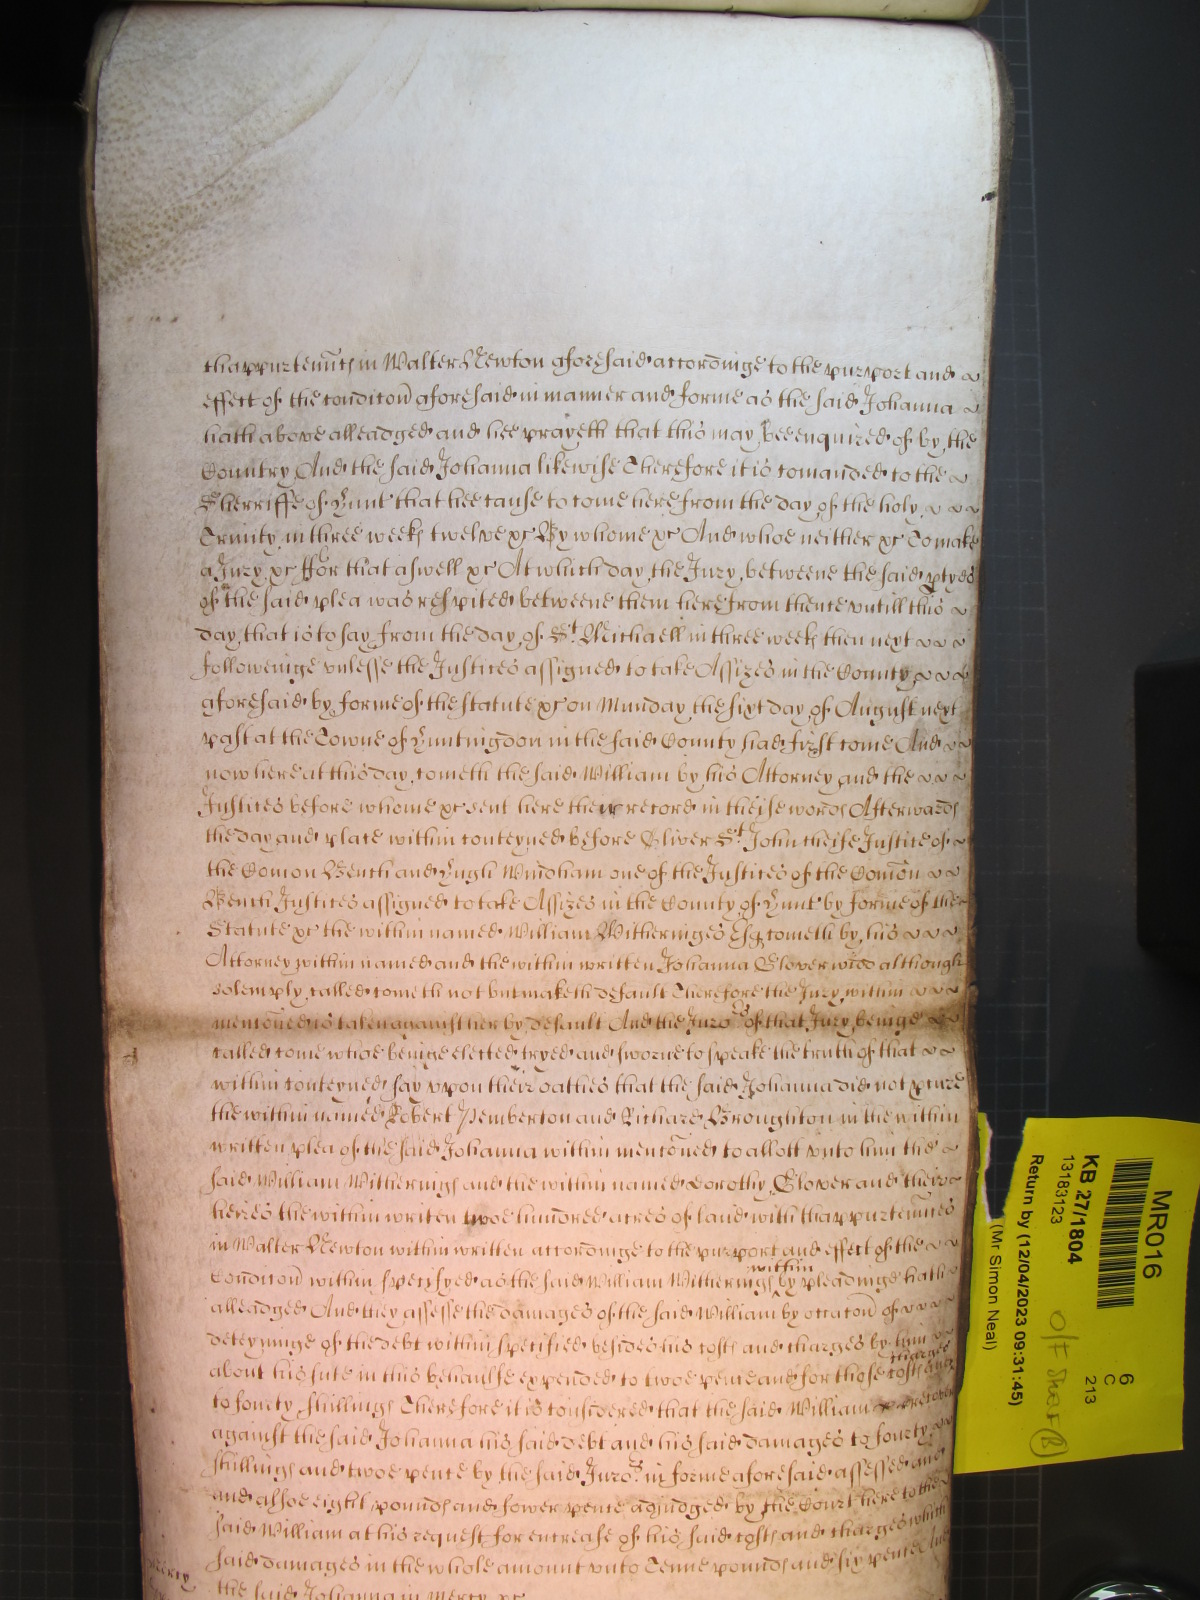 thappurtennc̄s in Walter Newton aforesaid accordinge to the purport and
effect of the condic̄on aforesaid in manner and forme as the said Johanna
hath above alleadged and hee prayeth that this may bee enquired of by the
Country And the said Johanna likewise Therefore it is comanded to the
Sherriffe of Hunt that hee cause to come here from the day of the holy
Trinity in three weekes twelve &c By whome &c And whoe neither &c To make
a Jury &c ffor that aswell &c At which day the Jury betweene the said ptyes
of the said plea was respited betweene them here from thence untill this
day that is to say from the day of St. Michaell in three weekes then next
followeinge unlesse the Justices assigned to take Assizes in the County
aforesaid by forme of the statute &c on Munday the sixt day of August next
past at the Towne of Huntingdon in the said County had first come And
now here at this day cometh the said William by his Attorney and the
Justices before whome &c sent here their record in theise words Afterwards
the day and place within conteyned before Oliver St. John cheife Justice of
the Comon Bench and Hugh Windham one of the Justices of the Com̄on
Bench Justices assigned to take Assizes in the County of Hunt by forme of the
Statute &c the within named William Witheringes Esq cometh by his
Attorney within named and the within written Johanna Glover who although
solemply called cometh not but maketh default Therefore the Jury within
menc̄oned is taken against her by default And the Juro:rs of that Jury beinge
called come whoe beinge elected tryed and sworne to speake the truth of that
within conteyned say upon their oathes that the said Johanna did not pcure
the within named Robert Pemberton and Richard Broughton in the within
written plea of the said Johanna within menc̄oned to allott unto him the
said William Witherings and the within named Dorothy Glover and their
heires the within writen twoe hundred acres of land with thappurtennc̄es
in Walter Newton within written accordinge to the purport and effect of the
Condic̄on within specifyed as the said William Witherings by within pleadinge hath
alleadged And they assesse the damages of the said William by occac̄on of
deteyninge of the debt within specified besides his costs and charges by him
about his sute in this behaulfe expended to twoe pence and for those costs and charges
to fourty shillings Therefore it is considered that the said William recover
against the said Johanna his said debt and his said damages to fourty
shillings and twoe pence by the said Juro:rs in forme aforesaid assessed and
and alsoe eight pounds and fower pence adjudged by the Court here to the
said William at his request for encrease of his said costs and charges which
said damages in the whole amount unto Tenne pounds and six pence And
the said Johanna in mercy &c
mercy
MR016
KB 27/1804
13183123
Return by (12/04/2023 09:31:45)
(Mr Simon Neal)
6
C
213
O/F Shear B